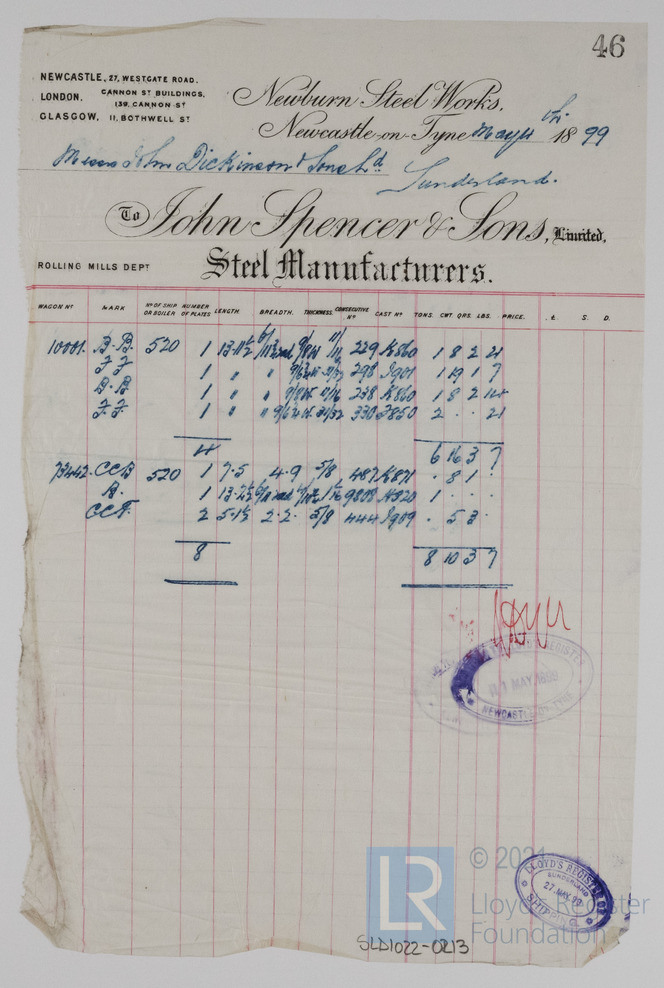 46
NEWCASTLE, 27, WESTGATE ROAD.
LONDON. CANNON ST BUILDINGS,
139, CANNON ST
GLASGOW, 11, BOTHWELL ST
Newburn Steel Works,
Newcastle-on-Tyne May 11th 1899
Messrs John Dickinson & Sons Ld
Sunderland.
To John Spencer & Sons, Limited,
ROLLING MILLS DEPT Steel Manufacturers.
WAGON No MARK No OF SHIP OR BOILER NUMBER OF PLATES LENGTH BREADTH. THICKNESS. CONSECUTIVE No CAST No TONS. CWT QRS. LBS. PRICE. £. S. D.
10001. B.B. 520 1 13-11½ 11/16 229 K860 1 8 2 21
F.F. 1 " " 298 1 19 1 7
B.B. 1 " " 238 K860 1 8 2 14
F.F. 1 " " 330 2 . . 21
4 6 16 3 7
73442. CCB 520 1 7-5 4-9 5/8 487 K871 . 8 1 .
B. 1 13-2½ 9808 1 . . .
CCF. 2 5-1½ 2-2 5/8 444 . 5 3 .
8 8 10 3 7
REGISTER
11 MAY 1899
NEWCASTLE-ON-TYNE
© 2021
LLOYD'S REGISTER OF
SUNDERLAND
27. MAY. 99
SHIPPING
LR
Lloyd's Register
Foundation
SLD1022-0213